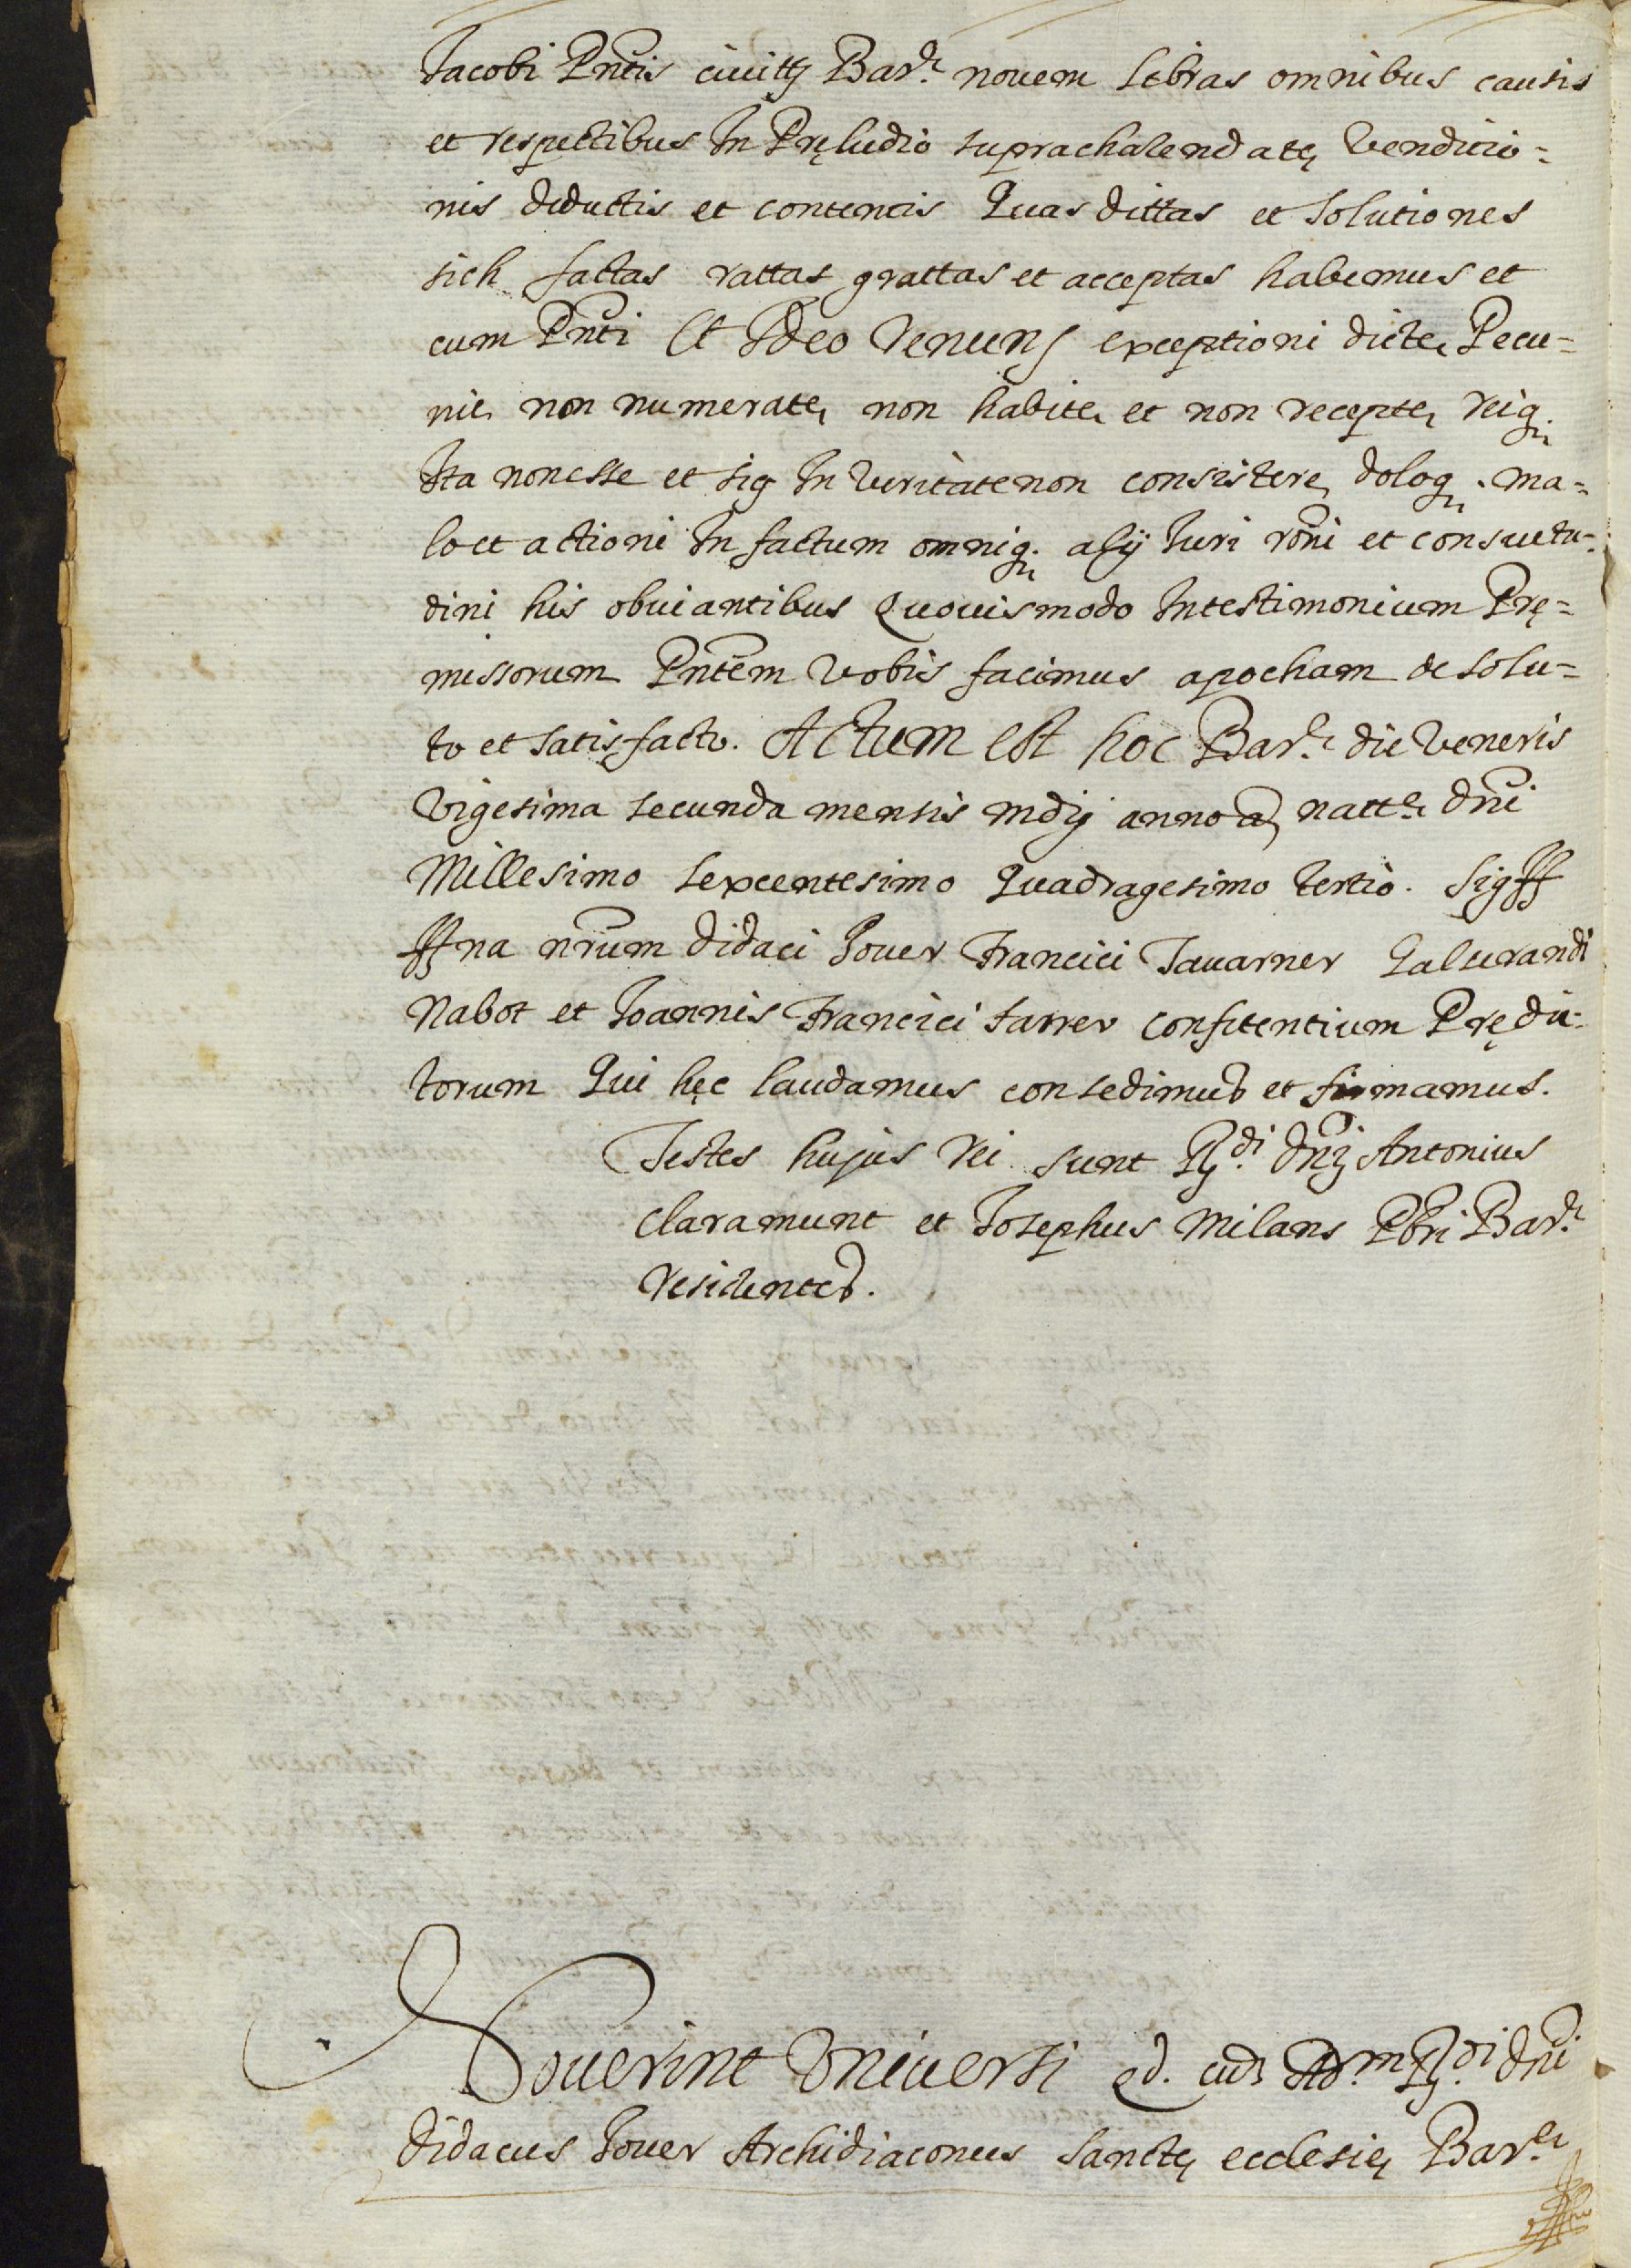 Jacobi Pn̄tis ciuittȝ Bar.e nouem Lebras omnibus causis
et respectibus In Pręludio suprachalendatę Venditio=
nis deductis et contentis Quas dittas et solutiones
sich factas rattas grattas et acceptas habemus et
cum Pn̄ti Et Ideo Renunȝ exceptioni dictę Pecu=
nię non numeratę non habitę et non receptę reiq;
Ita non esse et sig In Veritate non consistere, doloq; ma=
lo et actioni In factum omniq; alij Iuri rōni et consuetu=
dini his obuiantibus Quouismodo In testimonium Prę=
missorum Pn̄tem Vobis facimus apocham de solu=
to et satisfacto. Actum est hoc Bar.e die Veneris
Vigesima secunda mensis mdij anno a natt.e dn̄i
Millesimo sexcentesimo Quadragesimo tertio. Sigff
ffna nr̄um didaci Jouer Francici Tauarner Galserandi
Nabot et Joannis Francici sarrer confitentium Prędic=
torum Qui hęc laudamus consedimus et firmamus.
Testes hujus rei sunt Rȷ.di dn̄ȷ Antonius
Claramunt et Josephus Milans Pbr̄i Bar.e
residentes.
Nouerint Vniuersi qd. cus Ad.m Rȷ.di dn̄i
didacus Jouer Archidiaconus Sanctę ecclesię Bar.e